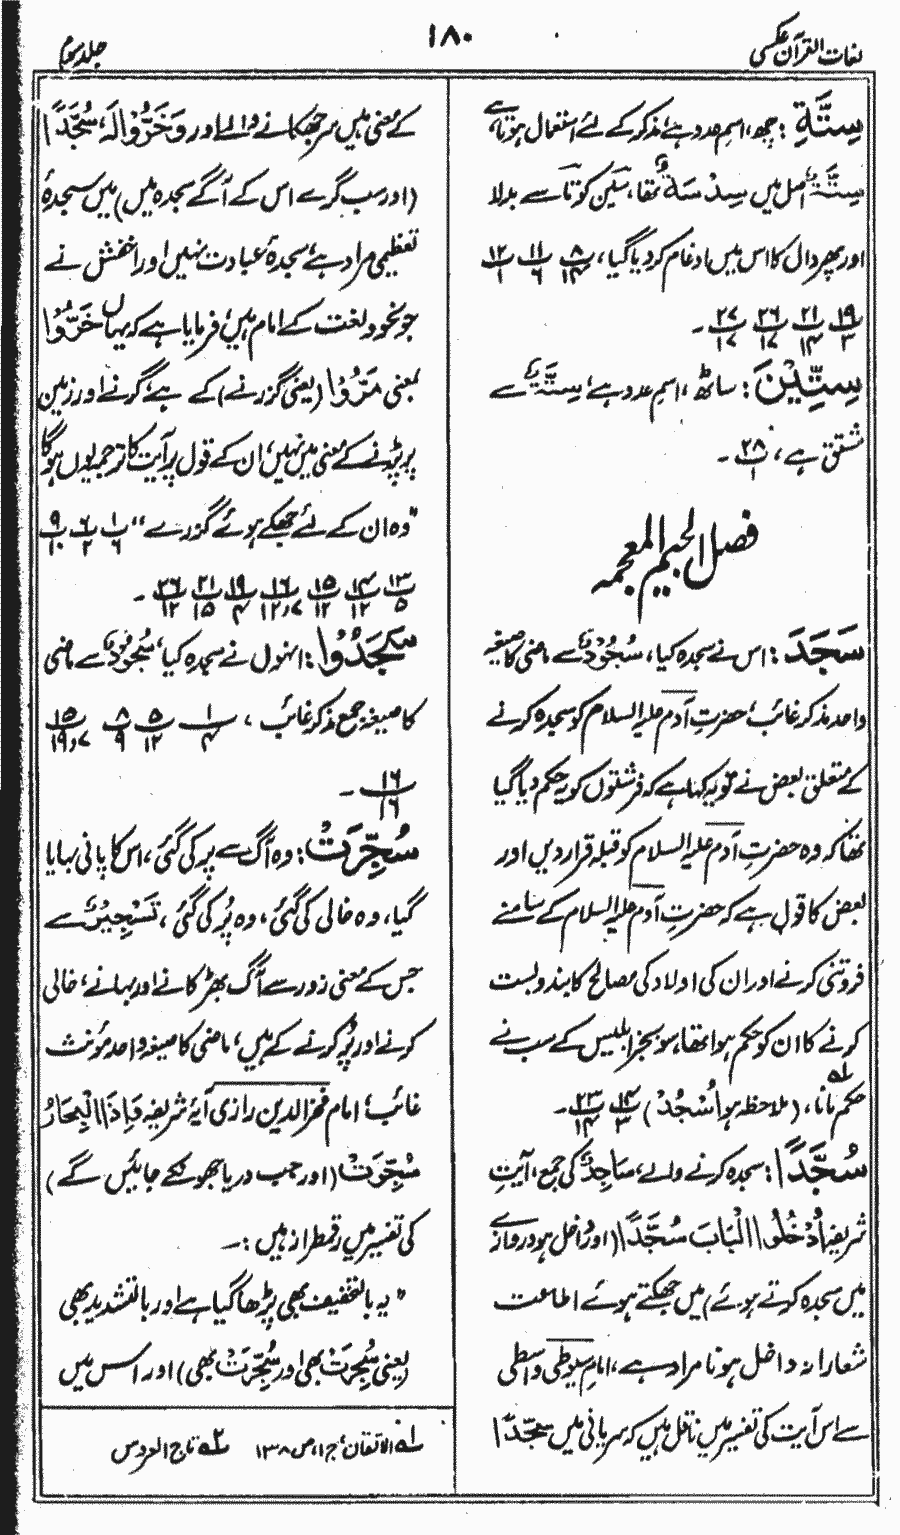 لغات القرآن عکسی
۱۸۰
جلد سوم
سِتَّةِ : چھ، اسمِ عدد ہے، مذکر کے لئے استعمال ہوتا ہے
سِتَّةٌ اصل میں سِدْسَةٌ تھا، سین کو تا سے بدلا
اور پھر دال کا اس میں ادغام کر دیا گیا، ۸/۱۴ ۱۱/۶ ۱۲/۱
۱۹/۳ ۲۱/۱۴ ۲۶/۱۷ ۲۷/۱۷ ۔
سِتِّيْنَ : ساٹھ، اسمِ عدد ہے، سِتَّةٌ سے
مشتق ہے، ۲۸/۱ ۔
فصل الجیم المعجمہ
سَجَدَ : اس نے سجدہ کیا، سُجُوْدٌ سے ماضی کا صیغہ
واحد مذکر غائب، حضرتِ آدم علیہ السلام کو سجدہ کرنے
کے متعلق بعض نے تو یہ کہا ہے کہ فرشتوں کو یہ حکم دیا گیا
تھا کہ وہ حضرتِ آدم علیہ السلام کو قبلہ قرار دیں اور
بعض کا قول ہے کہ حضرتِ آدم علیہ السلام کے سامنے
فروتنی کرنے اور ان کی اولاد کی مصالح کا بندوبست
کرنے کا ان کو حکم ہوا تھا، سو بجز ابلیس کے سب نے
حکم مانا، (ملاحظہ ہو اُسْجُدْ) ۱۴/۳ ۲۳/۱۴ ۔
سُجَّدًا : سجدہ کرنے والے، سَاجِدٌ کی جمع، آیتِ
شریفہ اُدْخُلُوا الْبَابَ سُجَّدًا (اور داخل ہو دروازے
میں سجدہ کرتے ہوئے) میں جھکتے ہوئے اطاعت
شعارانہ داخل ہونا مراد ہے، امام سیوطی واسطی
سے اس آیت کی تفسیر میں ناقل ہیں کہ سریانی میں سُجَّدًا
کے معنی ہیں سر جھکانے والے اور وَخَرُّوْا لَهٗ سُجَّدًا
(اور سب گرے اس کے آگے سجدہ میں) میں سجدۂ
تعظیمی مراد ہے، سجدۂ عبادت نہیں اور اخفش نے
جو نحو و لغت کے امام ہیں، فرمایا ہے کہ یہاں خَرُّوْا
بمعنی مَرُّوْا (یعنی گزرنے) کے ہے، گرنے اور زمین
پر پڑنے کے معنی میں نہیں، ان کے قول پر آیت کا ترجمہ یوں ہوگا
"وہ ان کے لئے جھکے ہوئے گزرے" ۱/۶ ۶/۲ ۹/۱۰
۱۳/۵ ۱۴/۱۲ ۱۵/۱۲ ۱۶/۱۲و۷ ۱۹/۴ ۲۱/۱۵ ۲۶/۱۲ ۔
سَجَدُوْا : انہوں نے سجدہ کیا، سُجُوْدٌ سے ماضی
کا صیغہ جمع مذکر غائب، ۱/۴ ۵/۱۲ ۸/۹ ۱۵/۱۹و۷
۱۶/۱۶ ۔
سُجِّرَتْ : وہ آگ سے پر کی گئی، اس کا پانی بہایا
گیا، وہ خالی کی گئی، وہ پُر کی گئی، تَسْجِيْرٌ سے
جس کے معنی زور سے آگ بھڑکانے اور بہانے، خالی
کرنے اور پُر کرنے کے ہیں، ماضی کا صیغہ واحد مؤنث
غائب، امام فخر الدین رازی آیۂ شریفہ وَاِذَا الْبِحَارُ
سُجِّرَتْ (اور جب دریا جھونکے جائیں گے)
کی تفسیر میں رقمطراز ہیں :۔
"یہ بالتخفیف بھی پڑھا گیا ہے اور بالتشدید بھی
(یعنی سُجِرَتْ بھی اور سُجِّرَتْ بھی) اور اس میں
۱؎ الاتقان، ج ۱، ص ۱۳۸ ۲؎ تاج العروس